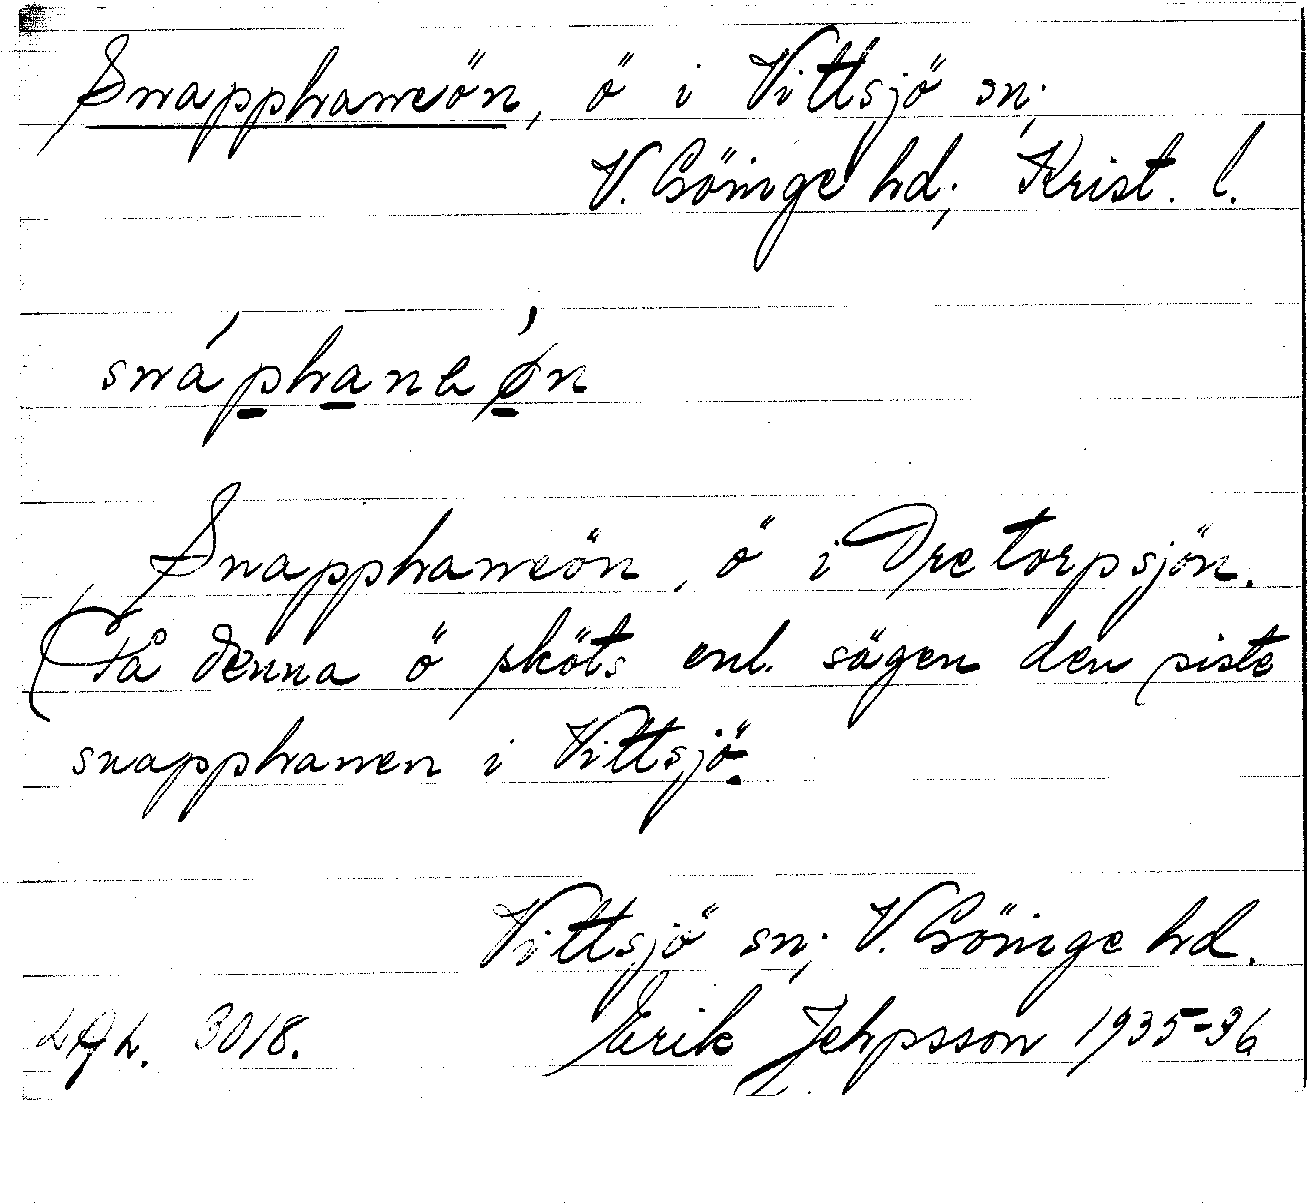 Snapphaneön, ö i Vittsjö sn;
V. Göinge hd; Krist. l.
snáphaneøn
Snapphaneön, ö i Dretorpsjön.
(På denna ö sköts enl. sägen den siste
snapphanen i Vittsjö.
Vittsjö sn; V. Göinge hd.
3018. Erik Jeppsson 1935-36